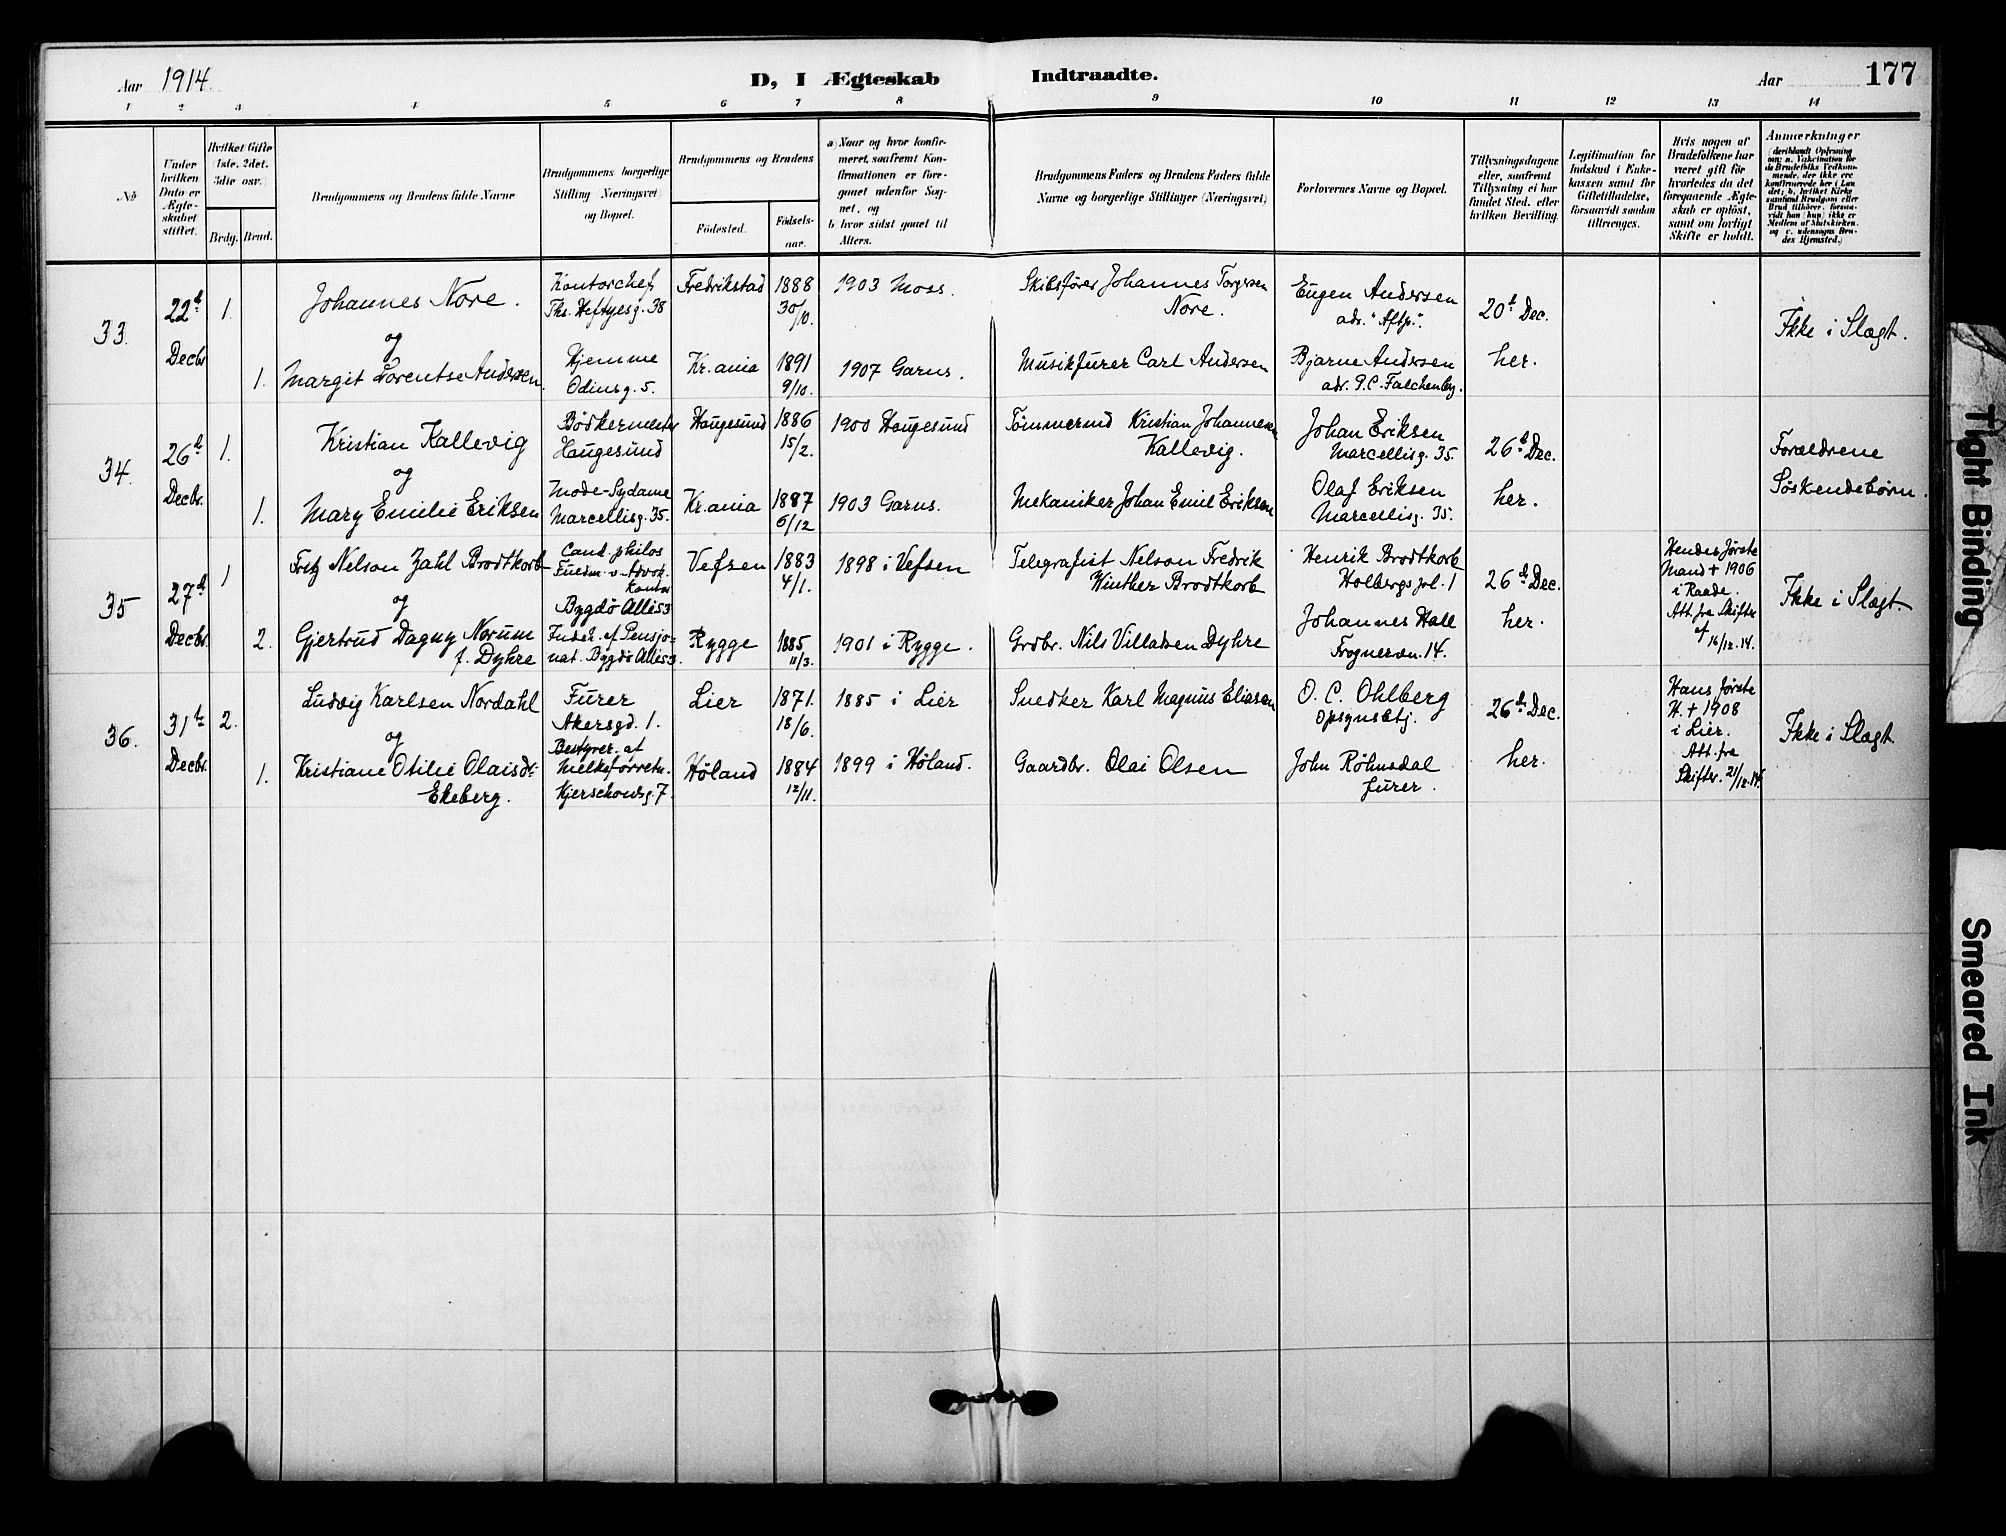 Aar 1914. D, I Ægteskab Indtraadte. Aar 177
1 2 3 4 5 6 7 8 9 10 11 12 13 14
No
Under hvilken Dato er Ægte-skabet stiftet.
Hvilket Gifte (1ste, 2det, 3die osv.)
Brdg. Brud.
Brudgommens og Brudens fulde Navne
Brudgommens borgerlige Stilling (Næringsvei) og Bopæl.
Brudgommens og Brudens
Fødested.
Fødsels-aar.
a) Naar og hvor konfir-meret, saafremt Kon-firmationen er fore-gaaet udenfor Sog-net, og
b) hvor sidst gaaet til Alters.
Brudgommens Faders og Brudens Faders fulde Navne og borgerlige Stillinger (Næringsvei)
Forlovernes Navne og Bopæl.
Tillysningsdagene eller, saafremt Tillysning ei har fundet Sted, efter hvilken Bevilling.
Legitimation for Indskud i Enke-kassen samt for Giftetilladelse, forsaavidt saadan tiltrænges.
Hvis nogen af Brudefolkene har været gift før hvorledes da det foregaaende Ægte-skab er opløst, samt om lovligt Skifte er holdt.
Anmærkninger
(deriblandt Oplysning om: a. Vakcination for de Brudefolks Vedkom-mende, der ikke ere konfirmerede her i Lan-det; b. hvilket Kirke-samfund Brudgom eller Brud tilhører, forsaa-vidt han (hun) ikke er Medlem af Statskirken, og c. udensogns Bru-des Hjemsted.)
33.
22de Decbr
1.
Johannes Nore.
og
1. Margit Lorentse Andersen.
Kontorchef
Ths. Heftyesg. 38
Hjemme
Odinsg. 5.
Fredrikstad
1888
30/10.
Kr.ania
1891
9/10.
1903 Moss.
1907 Garns.
Skibsfører Johannes Torgersen
Nore.
Musikfurer Carl Andersen
Eugen Andersen
adr. "Aftp."
Bjarne Andersen
adr. P.C. Falchenbg.
20de Dec.
her.
Ikke i Slægt.
34.
26de Decbr.
1.
Kristian Kallevig
og
1. Mary Emilie Eriksen
Bødkermester
Haugesund
Mode-Sydame
Marcellisg. 35.
Haugesund
1886
15/2.
Kr.ania
1887
6/12
1900 Haugesund
1903 Garns.
Tømmermd Kristian Johannesen
Kallevig.
Mekaniker Johan Emil Eriksen
Johan Eriksen
Marcellisg. 35.
Olaf Eriksen
Marcellisg. 35.
26de Dec.
her.
Forældrene
Søskendebørn.
35
27de Decbr.
1
Fritz Nelson Zahl Brodtkorb
og
2. Gjertrud Dagny Norum
f. Dyhre
Cand. philos
Fuldm. v. Advok.
Kontor
Bygdö Allé 53
Indeh. af Pensjo-
nat. Bygdö Allé 53.
Vefsen
1883
4/1.
Rygge
1885
11/3.
1898 i Vefsen
1901 i Rygge.
Telegrafist Nelson Fredrik
Winther Brodtkorb
Grdbr. Nils Villadsen Dyhre
Henrik Brodtkorb
Holbergs pl. 1
Johannes Hall
Frognervn. 14.
26de Dec.
her.
Hendes første
Mand + 1906
i Raade.
Att. fra Skifter.
af 16/12.14.
Ikke i Slægt.
36.
31te Decbr.
2.
Ludvig Karlsen Nordahl
og
1. Kristiane Otilie Olaisdt.
Ekeberg.
Furer
Akersgd. 1.
Bestyrer. af
Melkeforretn.
Kjerschowsg. 7.
Lier
1871.
18/6.
Høland
1884
12/11.
1885 i Lier
1899 i Høland.
Snedker Karl Magnus Eliasen
Gaardbr. Olai Olsen
O. C. Ohlberg
Opsynsbtj.
John Röhnsdal
furer.
26de Dec.
her.
Hans første
H. + 1908
i Lier.
Att. fra
Skifter. 21/12.14.
Ikke i Slægt
Tight Binding
Smeared Ink